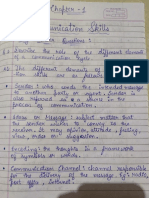 Chapter - 1
Communication Skills
Answer Questions :
Describe the role of the different elements
of a communication cycle
The different elements of communica-
tion skills are as follows
Sender :- who sends the intended message
to another party or agent. Sender is
also referred as a source in the
process of communication
Ideas or Message : subject matter that
the sender wishes to convey to the
receiver. It may opinion, attitude, feeling,
view, order or suggestion.
Encoding : the thoughts in a framework
of symbols or words.
Communication Channel : channel responsible
for the delivery of the message Eg:- mails,
post office, Internet.